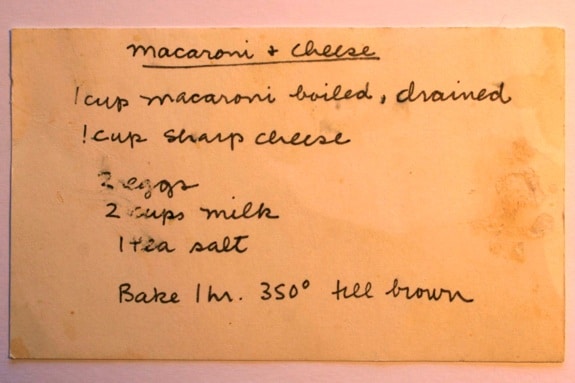 macaroni + cheese
1 cup macaroni boiled, drained
1 cup sharp cheese
2 eggs
2 cups milk
1 tea salt
Bake 1 hr. 350° till brown